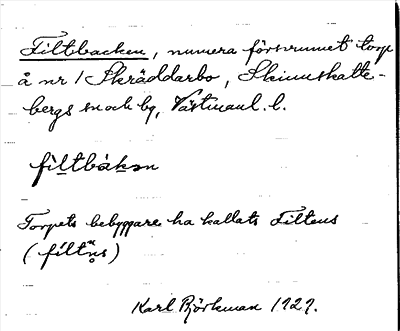 Filtbacken, numera försvunnet torp
å nr 1 Skräddarbo, Skinnskatte-
bergs sn och bg, Västmanl. l.
filtbàkən
Torpets bebyggare ha kallats Filtens
(filtn̥s)
Karl Björkman 1929.